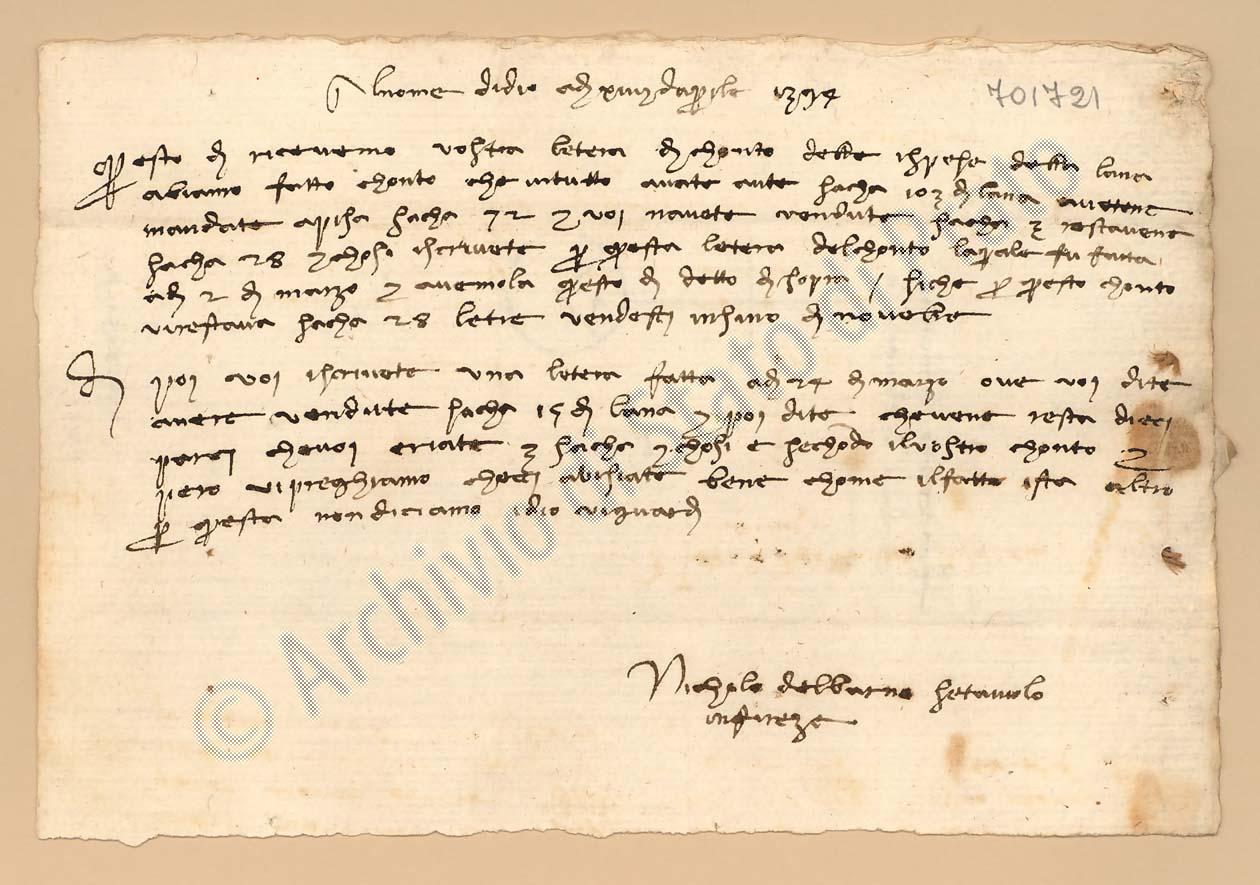 Al nome didio adi xiiii daprile 1394
701721
questo di ricevemo vostra letera di chonto delle ispese della lana
abiamo fatto chonto che intutto avate aute sacha 103 di lana avetene
mandate a pisa sacha 72 e voi navete vendute sacha 3 restavene
sacha 28 e chosi iscrivete per questa letera del chonto laquale fu fatta
adi 2 di marzo e avemola questo di detto di sopra / siche per questo chonto
vi restava sacha 28 le tre vendesti insino di novebre
Di poi voi iscrivete una letera fatta adi 24 di marzo ove voi dite
avere vendute sacha 15 di lana e poi dite chevene resta dieci
parci chevoi eriate 3 sacha e chosi e sechondo il vostro chonto e
pero vi preghiamo checi avisiate bene chome il fatto ista altro
per questa non diciamo idio vi guardi
Nicholo delbuono setaiuolo
in fireze
© Archivio di Stato di Prato